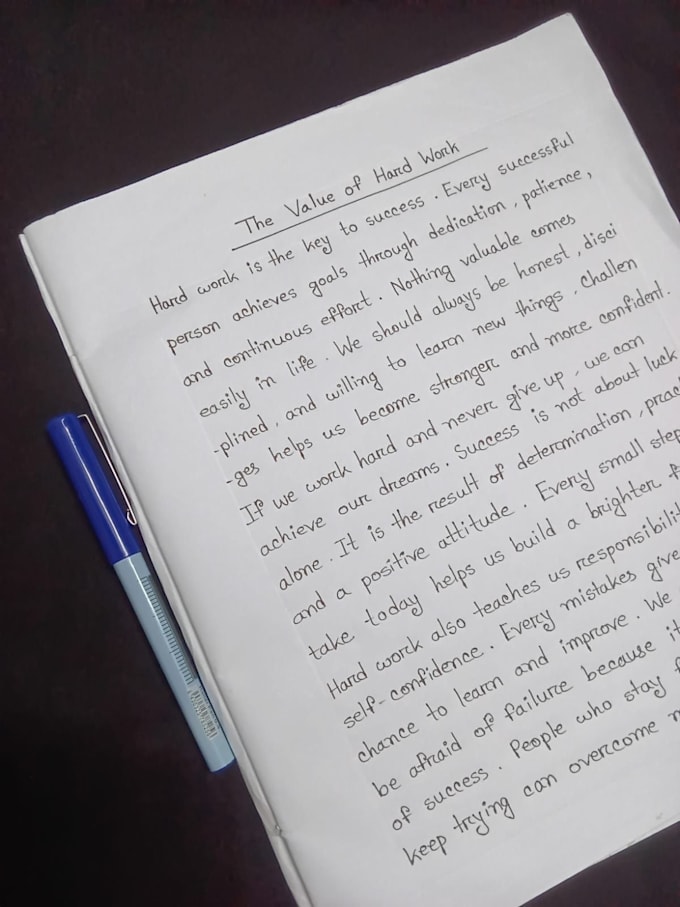 The Value of Hard Work
Hard work is the key to success. Every successful
person achieves goals through dedication, patience,
and continuous effort. Nothing valuable comes
easily in life. We should always be honest, disci
-plined, and willing to learn new things. Challen
-ges helps us become stronger and more confident.
If we work hard and never give up, we can
achieve our dreams. Success is not about luck
alone. It is the result of determination,
and a positive attitude. Every small
take today helps us build a brighter
Hard work also teaches us
self-confidence. Every mistakes
chance to learn and improve. We
be afraid of failure because
of success. People who stay
keep trying can overcome